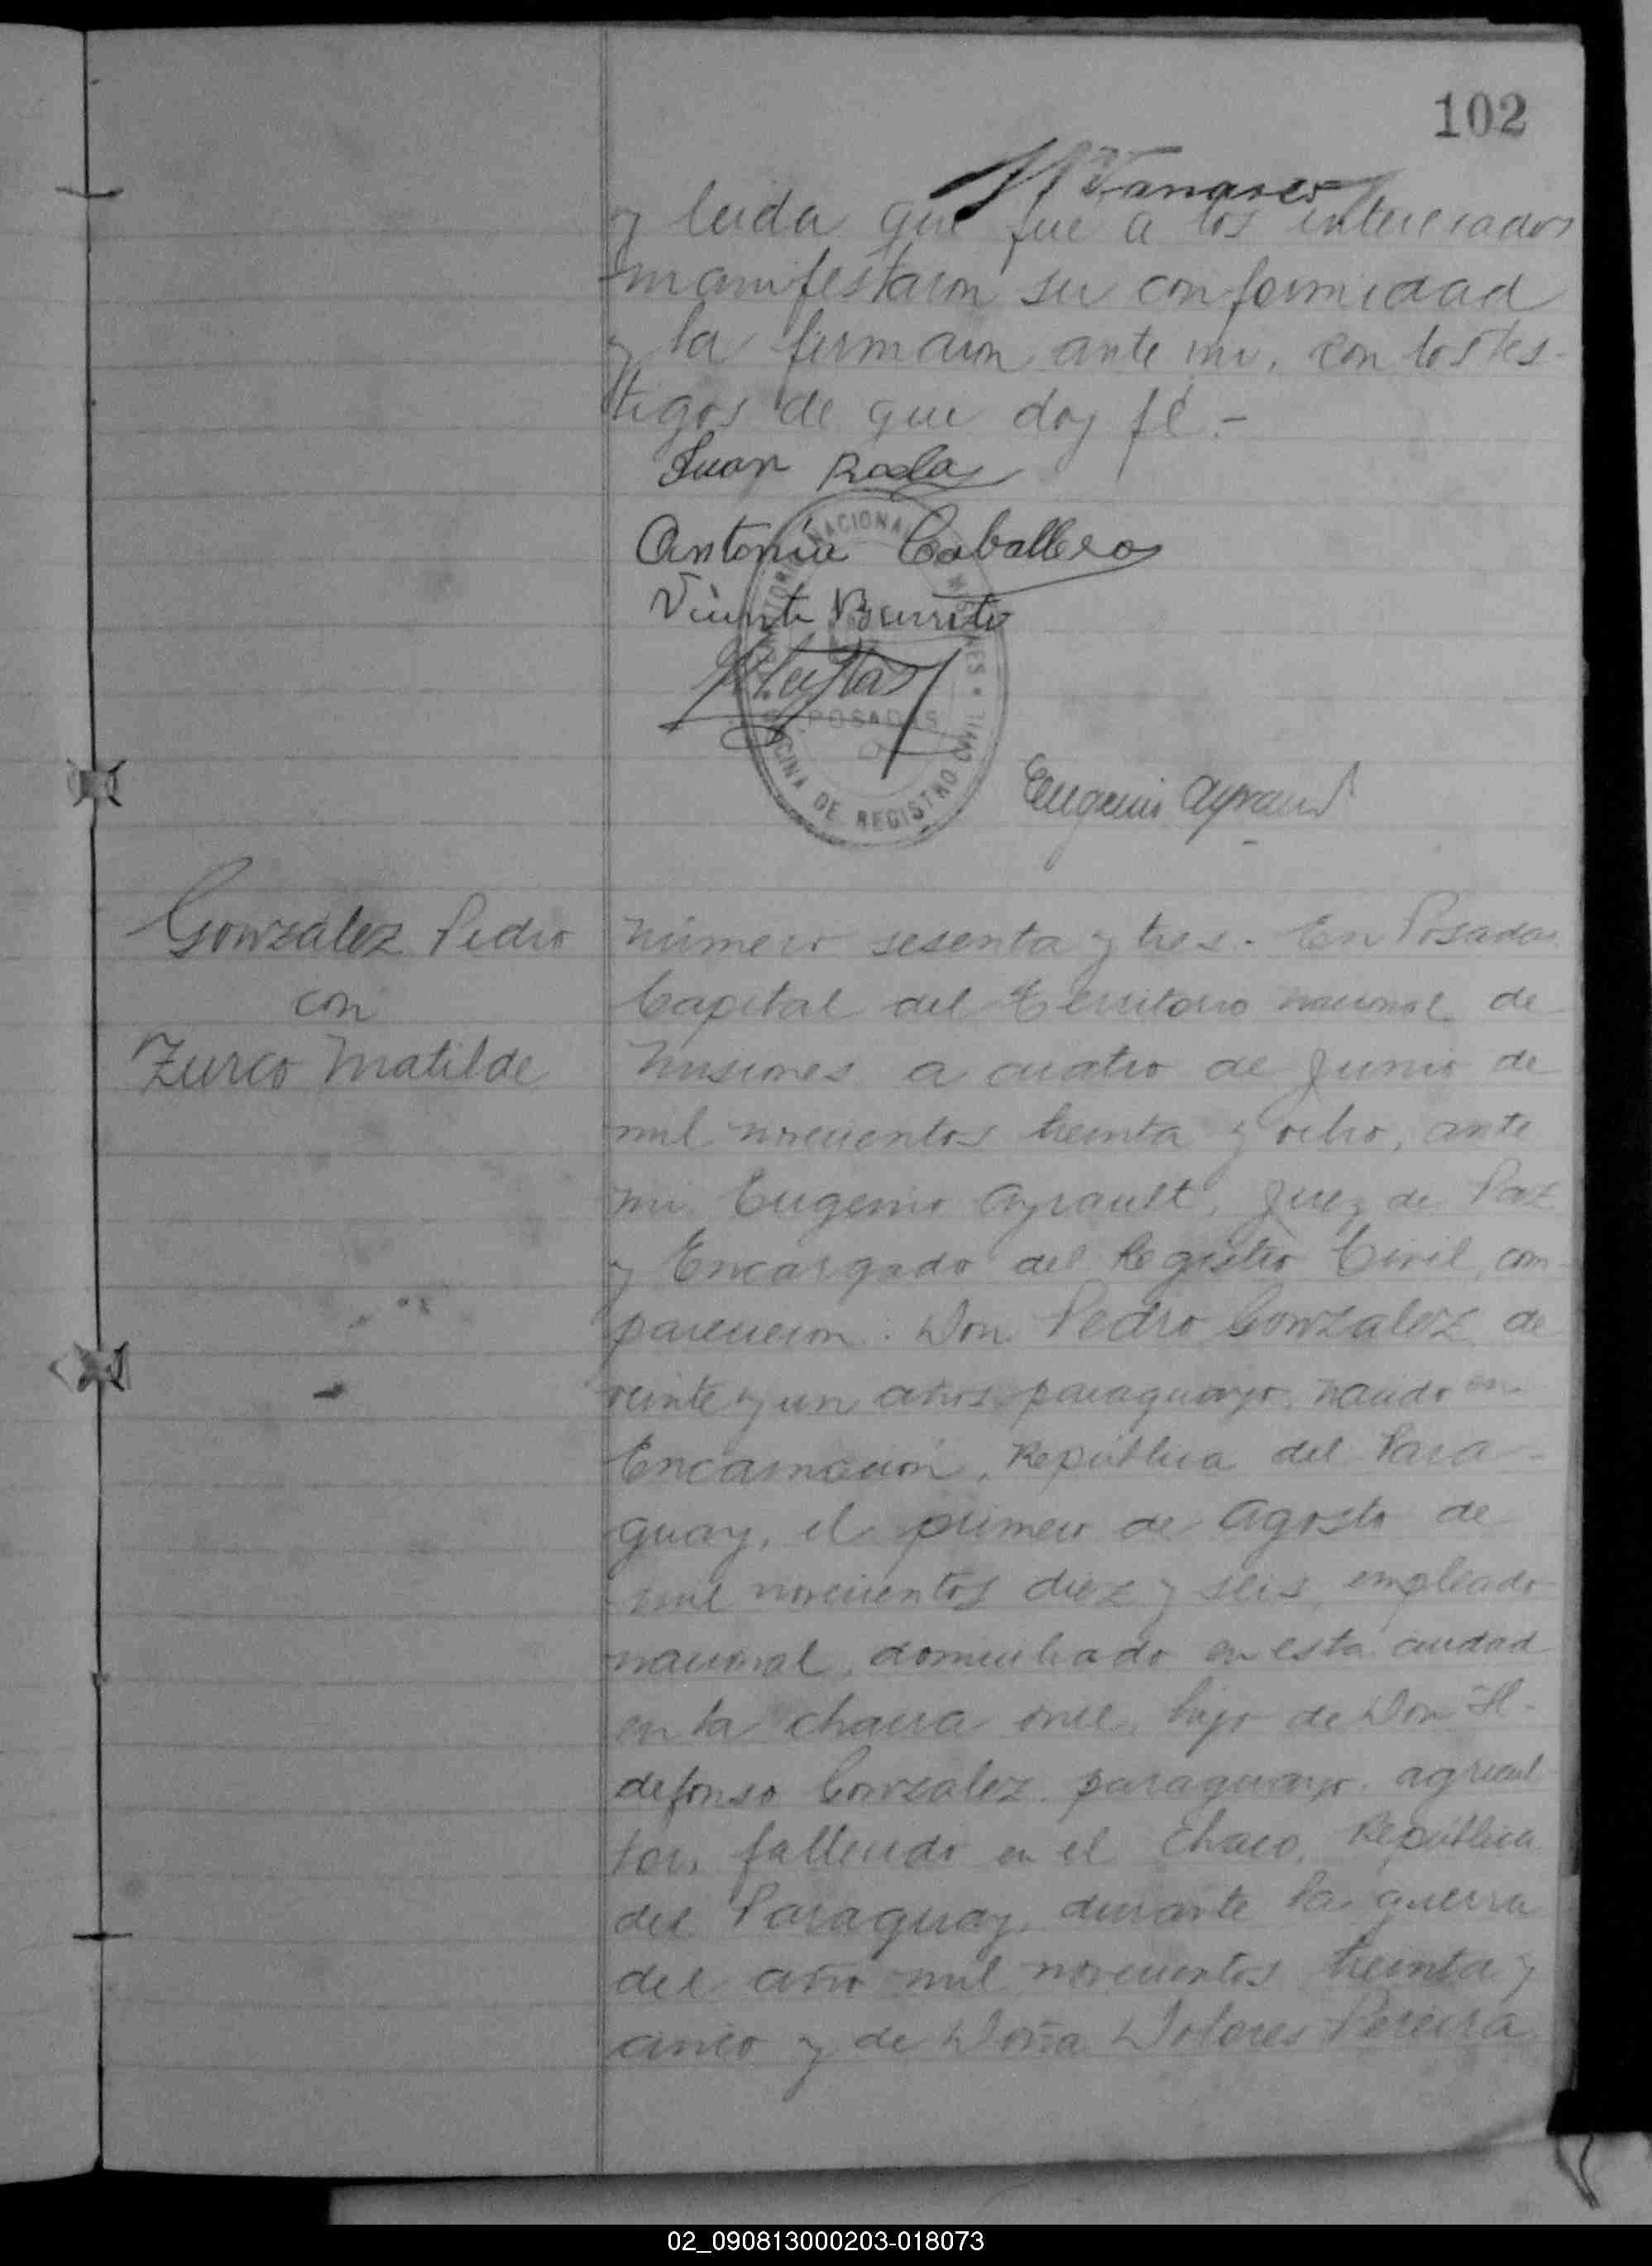 102
y leida que fue a los interesados
manifestaron su conformidad
y la firmaron ante mi, con los tes-
tigos de que doy fé.-
Juan Rodas
Antonia Caballero
Vicente Burrito
TERRITORIO NACIONAL MISIONES
POSADAS
OFICINA DE REGISTRO CIVIL
Eugenio Ayrault
González Pedro
con
Zurco Matilde
Número sesenta y tres. En Posadas
Capital del Territorio nacional de
Misiones a cuatro de Junio de
mil novecientos treinta y ocho, ante
mi Eugenio Ayrault, Juez de Paz
y Encargado del Registro Civil, com-
parecieron: Don Pedro Gonzalez, de
veinte y un años, paraguayo, nacido en
Encarnación, República del Para-
guay, el primero de Agosto de
mil novecientos diez y seis, empleado
nacional, domiciliado en esta ciudad
en la chacra once, hijo de Don Il-
defonso Gonzalez, paraguayo, agricul-
tor, fallecido en el Chaco, República
del Paraguay, durante la guerra
del año mil novecientos treinta y
cinco y de Doña Dolores Pereira
02_090813000203-018073